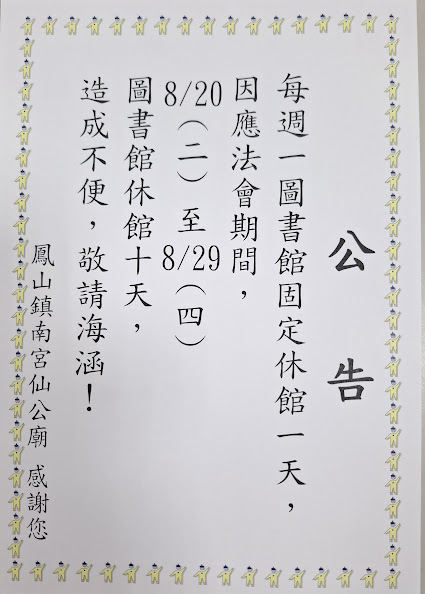 公告
每週一圖書館固定休館一天，
因應法會期間，
8/20（二）至8/29（四）
圖書館休館十天，
造成不便，敬請海涵！
鳳山鎮南宮仙公廟 感謝您